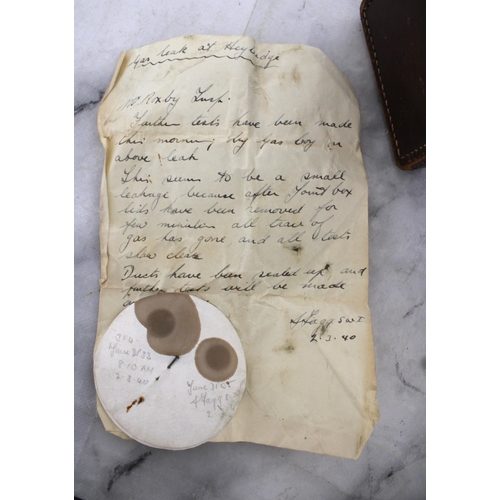 Gas leak at Heybridge
Mr Roxby Insp.
Further tests have been made
this morning by Gas Coy on
above leak
This seems to be a small
leakage because after Joint box
lids have been removed for
few minutes all trace of
gas has gone and all tests
show clear
Ducts have been sealed up and
further tests will be made
S Fagg SW I
2.3.40
8.10 AM
2.3.40